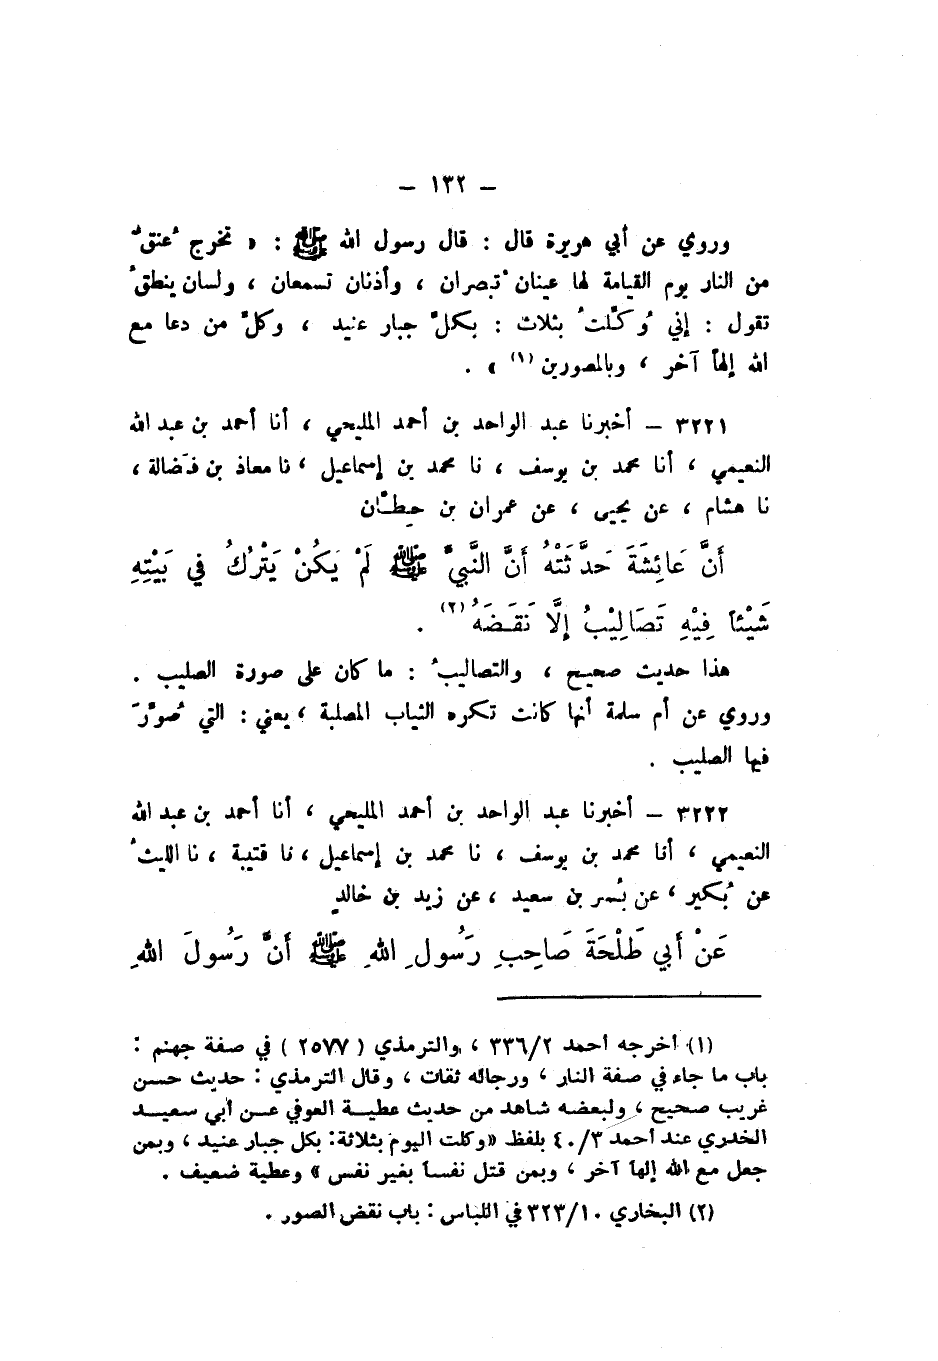 – ١٣٢ –
وروي عن أبي هريرة قال : قال رسول الله ﷺ : « تخرج عُنقٌ
من النار يوم القيامة لها عينان تُبصران ، وأذنان تسمعان ، ولسان ينطقُ
تقول : إني وُكِّلتُ بثلاث : بكلِّ جبار عنيد ، وكلِّ من دعا مع
الله إلهاً آخر ، وبالمصورين (١) » .
٣٢٢١ – أخبرنا عبد الواحد بن أحمد المليحي ، أنا أحمد بن عبد الله
النعيمي ، أنا محمد بن يوسف ، نا محمد بن إسماعيل ، نا معاذ بن فَضالة ،
نا هشام ، عن يحيى ، عن عمران بن حِطَّان
أَنَّ عَائِشَةَ حَدَّثَتْهُ أَنَّ النَّبِيَّ ﷺ لَمْ يَكُنْ يَتْرُكُ في بَيْتِهِ
شَيْئاً فِيْهِ تَصَالِيْبُ إِلَّا نَقَضَهُ (٢) .
هذا حديث صحيح ، والتصاليبُ : ما كان على صورة الصليب .
وروي عن أم سلمة أنها كانت تكره الثياب المصلبة ، يعني : التي صُوِّرَ
فيها الصليب .
٣٢٢٢ – أخبرنا عبد الواحد بن أحمد المليحي ، أنا أحمد بن عبد الله
النعيمي ، أنا محمد بن يوسف ، نا محمد بن إسماعيل ، نا قتيبة ، نا الليثُ
عن بُكير ، عن بُسر بن سعيد ، عن زيد بن خالدٍ
عَنْ أَبي طَلْحَةَ صَاحِبِ رَسُولِ اللهِ ﷺ أَنَّ رَسُولَ اللهِ
(١) أخرجه أحمد ٣٣٦/٢ ، والترمذي ( ٢٥٧٧ ) في صفة جهنم :
باب ما جاء في صفة النار ، ورجاله ثقات ، وقال الترمذي : حديث حسن
غريب صحيح ، ولبعضه شاهد من حديث عطية العوفي عن أبي سعيد
الخدري عند أحمد ٤٠/٣ بلفظ «وكلت اليوم بثلاثة: بكل جبار عنيد ، وبمن
جعل مع الله إلهاً آخر ، وبمن قتل نفساً بغير نفس » وعطية ضعيف .
(٢) البخاري ٣٢٣/١٠ في اللباس : باب نقض الصور .